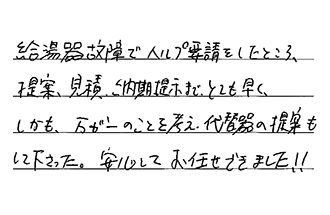 給湯器故障でヘルプ要請をしたところ、
提案、見積、納期提示まで、とても早く、
しかも、万が一のことを考え、代替器の提案も
して下さった。安心してお任せできました!!